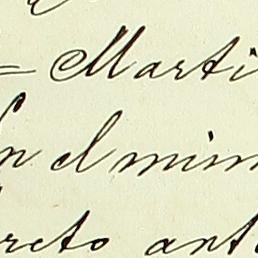 = Marti
En el mism
reto ant